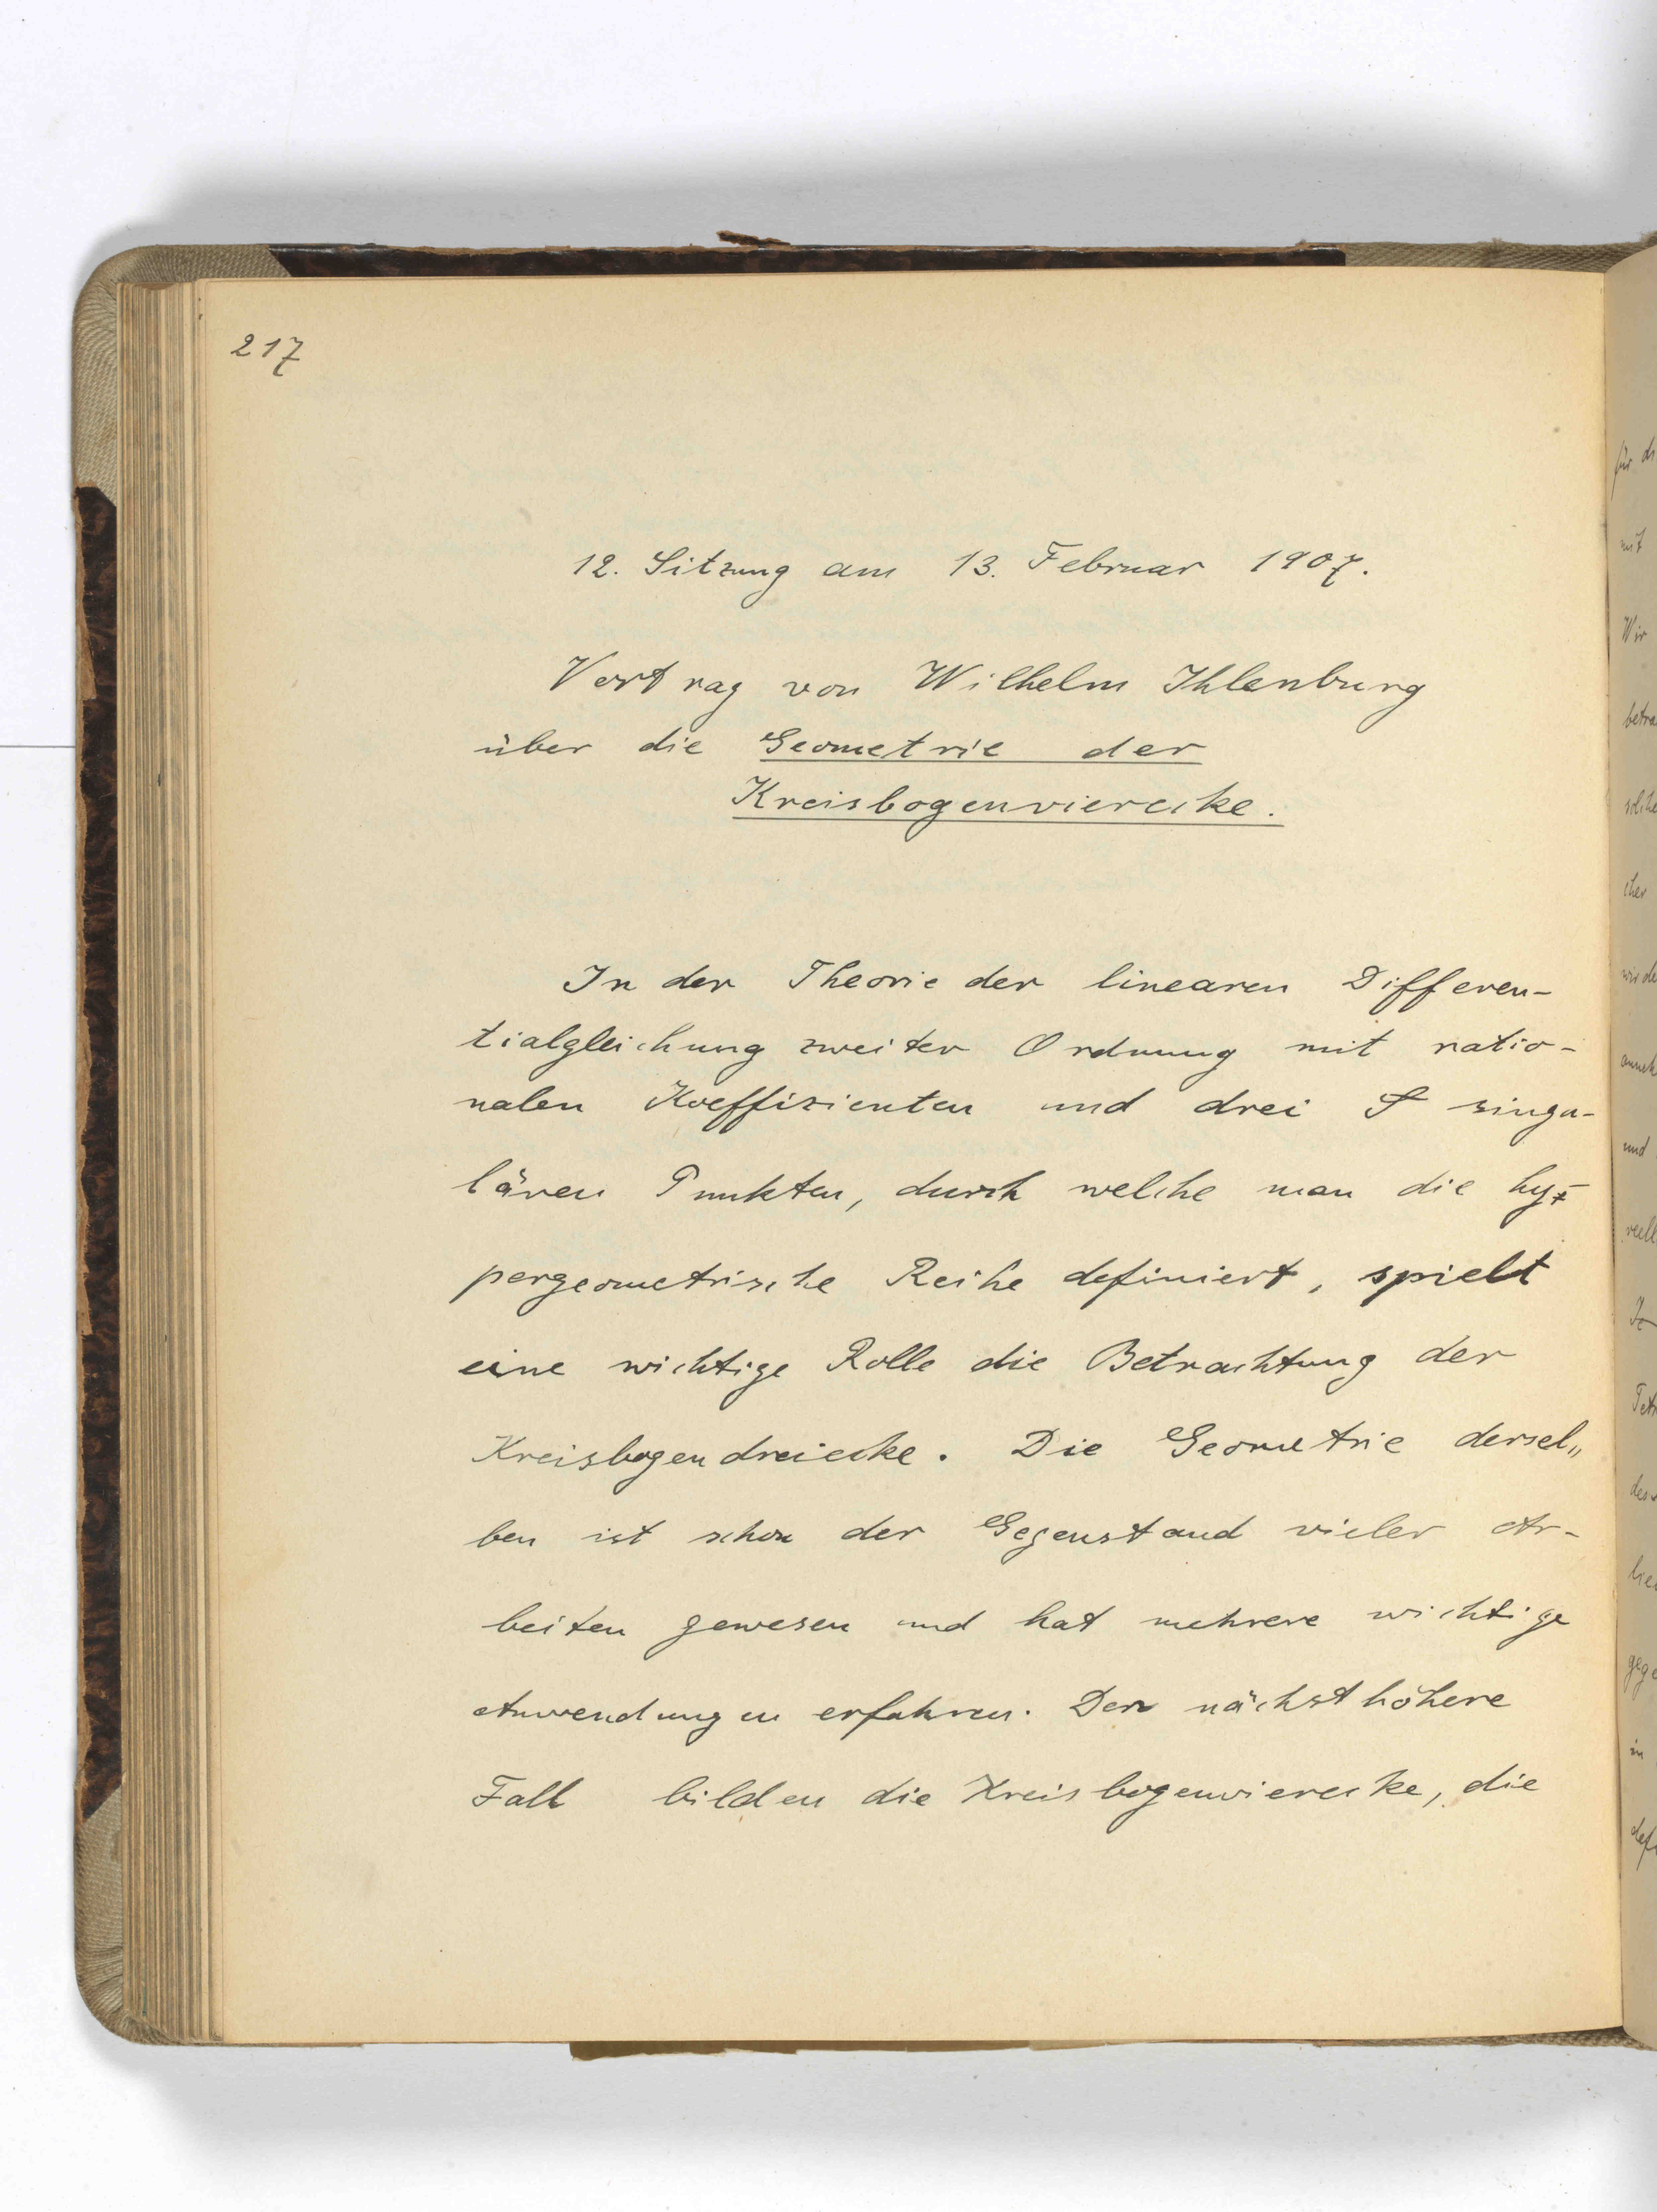 217
12. Sitzung am 13. Februar 1907.
Vortrag von Wilhelm Ihlenburg
über die Geometrie der
Kreisbogenvierecke.
In der Theorie der linearen Differen-
tialgleichung zweiter Ordnung mit ratio-
nalen Koeffizienten und drei singu-
lären Punkten, durch welche man die hy-
pergeometrische Reihe definiert, spielt
eine wichtige Rolle die Betrachtung der
Kreisbogendreiecke. Die Geometrie dersel„
ben ist schon der Gegenstand vieler Ar-
beiten gewesen und hat mehrere wichtige
Anwendungen erfahren. Den nächst höhere
Fall bilden die Kreisbogenvierecke, die